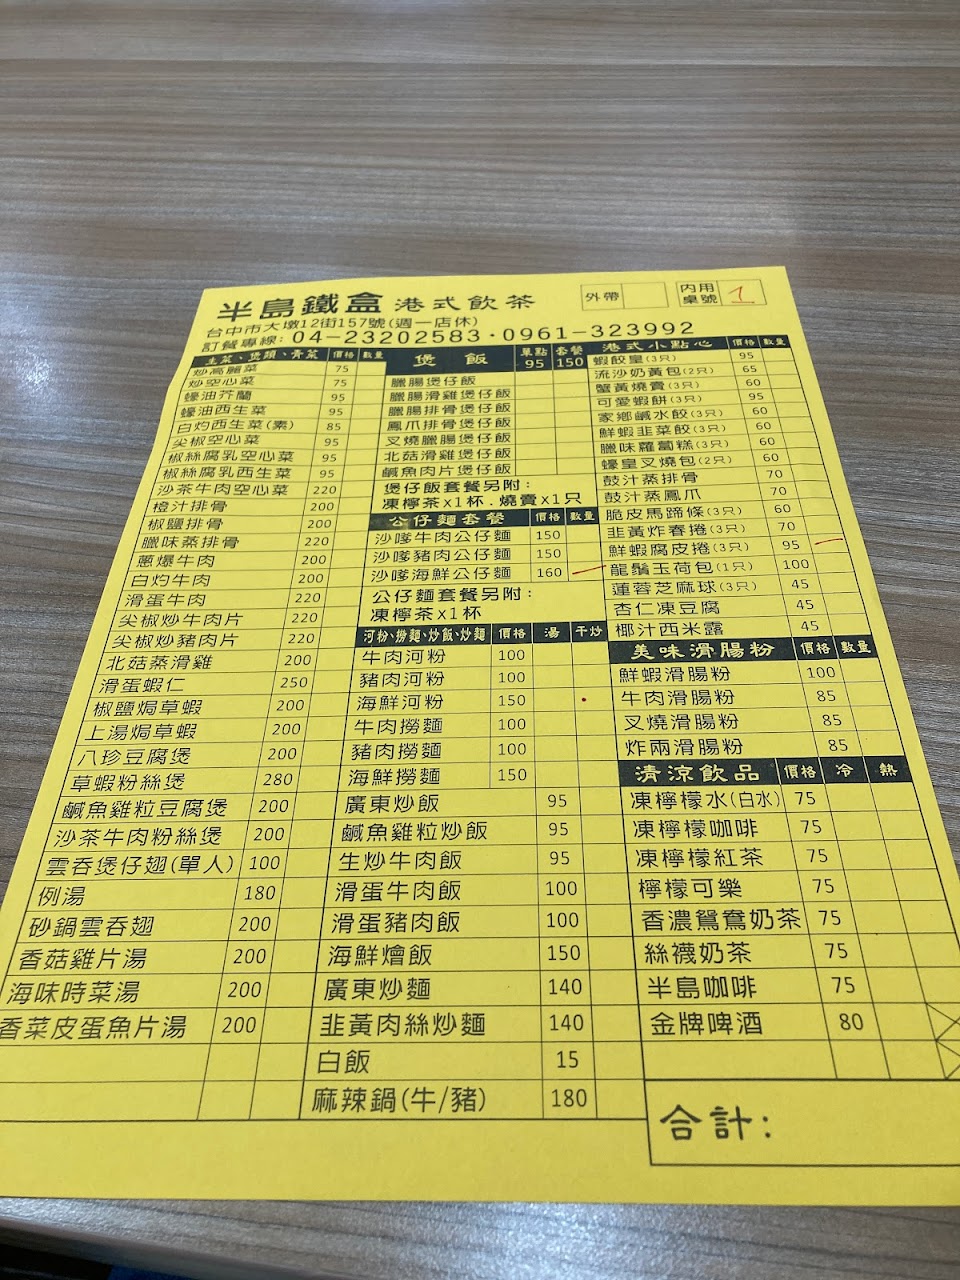 半島鐵盒 港式飲茶
外帶
內用桌號 1
台中市大墩12街157號(週一店休)
訂餐專線: 04-23202583·0961-323992
生菜、煲類、青菜 價格 數量
炒高麗菜 75
炒空心菜 75
蠔油芥蘭 95
蠔油西生菜 95
白灼西生菜(素) 85
尖椒空心菜 95
椒絲腐乳空心菜 95
椒絲腐乳西生菜 95
沙茶牛肉空心菜 220
橙汁排骨 200
椒鹽排骨 200
臘味蒸排骨 220
蔥爆牛肉 200
白灼牛肉 200
滑蛋牛肉 220
尖椒炒牛肉片 220
尖椒炒豬肉片 220
北菇蒸滑雞 200
滑蛋蝦仁 250
椒鹽焗草蝦 200
上湯焗草蝦 200
八珍豆腐煲 200
草蝦粉絲煲 280
鹹魚雞粒豆腐煲 200
沙茶牛肉粉絲煲 200
雲吞煲仔翅(單人) 100
例湯 180
砂鍋雲吞翅 200
香菇雞片湯 200
海味時菜湯 200
香菜皮蛋魚片湯 200
煲飯 單點95 套餐150
臘腸煲仔飯
臘腸滑雞煲仔飯
臘腸排骨煲仔飯
鳳爪排骨煲仔飯
叉燒臘腸煲仔飯
北菇滑雞煲仔飯
鹹魚肉片煲仔飯
煲仔飯套餐另附:
凍檸茶x1杯.燒賣x1只
公仔麵套餐 價格 數量
沙嗲牛肉公仔麵 150
沙嗲豬肉公仔麵 150
沙嗲海鮮公仔麵 160
公仔麵套餐另附:
凍檸茶x1杯
河粉、撈麵、炒飯、炒麵 價格 湯 干炒
牛肉河粉 100
豬肉河粉 100
海鮮河粉 150
牛肉撈麵 100
豬肉撈麵 100
海鮮撈麵 150
廣東炒飯 95
鹹魚雞粒炒飯 95
生炒牛肉飯 95
滑蛋牛肉飯 100
滑蛋豬肉飯 100
海鮮燴飯 150
廣東炒麵 140
韭黃肉絲炒麵 140
白飯 15
麻辣鍋(牛/豬) 180
港式小點心 價格 數量
蝦餃皇(3只) 95
流沙奶黃包(2只) 65
蟹黃燒賣(3只) 60
可愛蝦餅(3只) 95
家鄉鹹水餃(3只) 60
鮮蝦韭菜餃(3只) 60
臘味蘿蔔糕(3只) 60
蠔皇叉燒包(2只) 60
豉汁蒸排骨 70
豉汁蒸鳳爪 70
脆皮馬蹄條(3只) 60
韭黃炸春捲(3只) 70
鮮蝦腐皮捲(3只) 95
龍鬚玉荷包(1只) 100
蓮蓉芝麻球(3只) 45
杏仁凍豆腐 45
椰汁西米露 45
美味滑腸粉 價格 數量
鮮蝦滑腸粉 100
牛肉滑腸粉 85
叉燒滑腸粉 85
炸兩滑腸粉 85
清涼飲品 價格 冷 熱
凍檸檬水(白水) 75
凍檸檬咖啡 75
凍檸檬紅茶 75
檸檬可樂 75
香濃鴛鴦奶茶 75
絲襪奶茶 75
半島咖啡 75
金牌啤酒 80
合計: